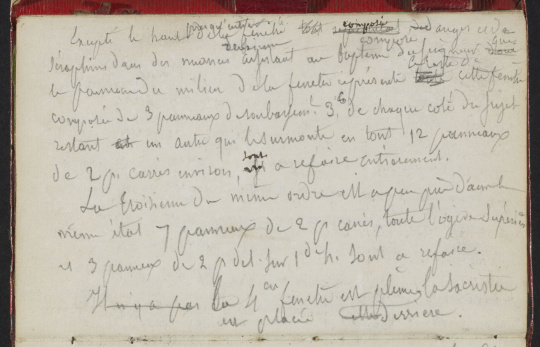 Excepté le haut de la fenêtre composé d'anges et de
Séraphins dans des nuances assistant au baptême du Seigneur
le panneau du milieu de la fenêtre représente cette fenêtre
composée de 3 panneaux de soubassemt 3 de chaque coté du Sujet
restant un autre qui le surmonte en tout 12 panneaux
de 2 p. carrés environ, sont a refaire entièrement.
La troisième du même ordre est a peu près dans le
même état 7 panneaux de 2 p carrés, toute l'ogive Supérieure
et 3 panneaux de 2 p de l. sur 1 d h. sont a refaire.
Il n'y a pas la 4eme fenêtre est pleine la Sacristie
est placée Derriere.